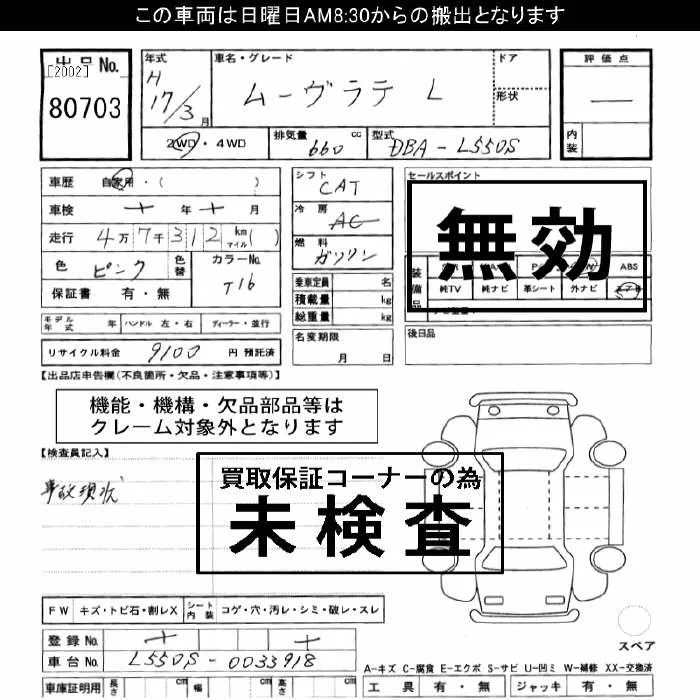 この車両は日曜日AM8:30からの搬出となります
出品No.
[2002]
80703
年式
H
17/3月
車名・グレード
ムーヴラテ L
ドア
形状
評価点
―
内装
2WD・4WD
排気量 660 cc
型式 DBA-L550S
車歴 自家用・( )
車検 年 月
走行 4万7千312 km マイル( )
色 ピンク 色替
カラーNo. T16
保証書 有・無
シフト
CAT
冷房
AC
燃料
ガソリン
乗車定員 名
積載量 kg
総重量 kg
セールスポイント
無効
装備品
ABS
純TV 純ナビ 革シート 外ナビ
モデル年式 年 ハンドル 左・右 ディーラー・並行
リサイクル料金 9100 円 預託済
名変期限
月 日
後日品
【出品店申告欄(不良箇所・欠品・注意事項等)】
機能・機構・欠品部品等は
クレーム対象外となります
【検査員記入】
事故現状
買取保証コーナーの為
未検査
FW キズ・トビ石・割レX シート内装 コゲ・穴・汚レ・シミ・破レ・スレ
登録No.
車台No. L550S-0033918
スペア
車庫証明用 長さ cm 幅 cm 高さ cm
A-キズ C-腐食 E-エクボ S-サビ U-凹ミ W-補修 XX-交換済
工具 有・無 ジャッキ 有・無